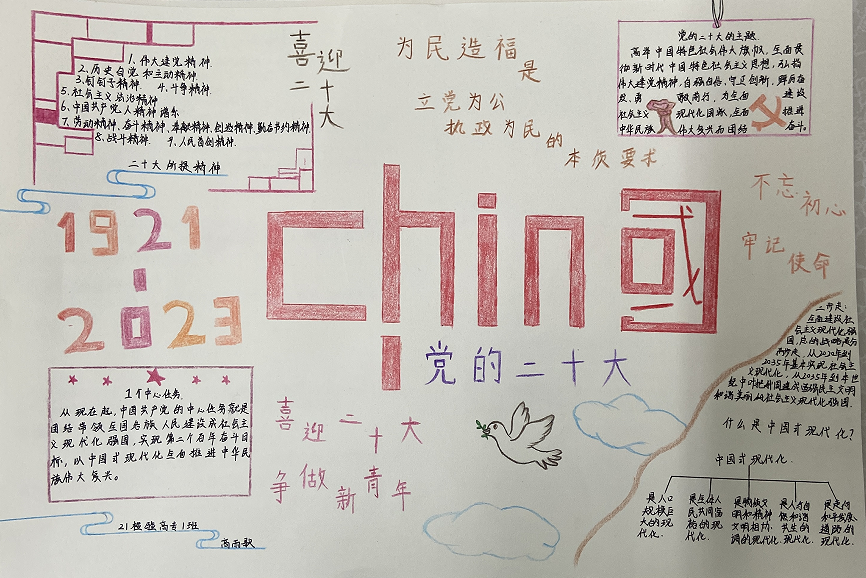 1、伟大建党精神.
2、历史自觉和主动精神.
3、钉钉子精神. 4、斗争精神.
5、社会主义法治精神
6、中国共产党人精神谱系
7、劳动精神、奋斗精神、奉献精神、创造精神、勤俭节约精神.
8、战斗精神. 9、人民首创精神.
二十大所提精神
喜迎
二十大
为民造福
是
立党为公
执政为民
的
本质要求
党的二十大的主题.
高举中国特色社会伟大旗帜，全面贯
彻新时代中国特色社会主义思想，弘扬
伟大建党精神，自信自强、守正创新，踔厉奋
发、勇 毅前行，为全面 建设
社会主义 现代化国家、全面 推进
中华民族 伟大复兴而团结 奋斗。
不忘初心
牢记使命
1921
-
2023
china国
党的二十大
1个中心任务.
从现在起，中国共产党的中心任务就是
团结带领全国各族人民建成社会主
义现代化强国，实现第二个百年奋斗目
标，以中国式现代化全面推进中华民
族伟大复兴。
喜迎二十大
争做新青年
全面建设社
会主义现代化强
国，总的战略是分
两步走，从2020年到
2035年基本实现社会主
义现代化，从2035年到本世
纪中叶把我国建成富强民主文明
和谐美丽的社会主义现代化强国.
什么是中国式现代化？
中国式现代化.
是人口规模巨大的现代化.
是全体人民共同富裕的现代化.
是物质文明和精神文明相协调的现代化.
是人与自然和谐共生的现代化.
是走和平发展道路的现代化.
21检验高专1班